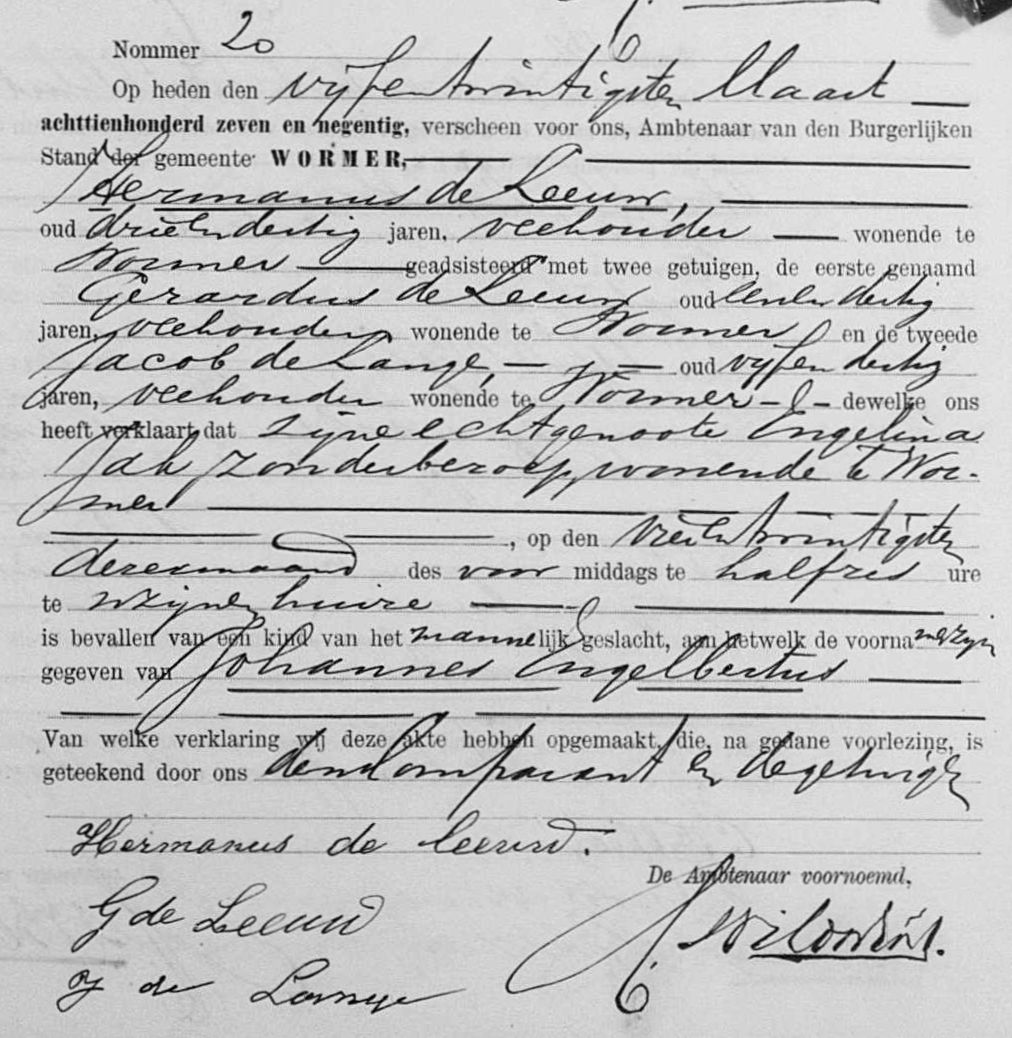 Nommer 20
Op heden den vijfentwintigsten Maart
achttienhonderd zeven en negentig, verscheen voor ons, Ambtenaar van den Burgerlijken
Stand der gemeente WORMER,
Hermanus de Leeuw,
oud drieendertig jaren, veehouder wonende te
Wormer geadsisteerd met twee getuigen, de eerste genaamd
Gerardus de Leeuw oud eenendertig
jaren, veehouder wonende te Wormer en de tweede
Jacob de Lange, oud vijfendertig
jaren, veehouder wonende te Wormer dewelke ons
heeft verklaart dat zijne echtgenoote Engelina
Jak zonder beroep, wonende te Wor-
mer
, op den vierentwintigsten
dezer maand des voor middags te half zes ure
te zijnen huize
is bevallen van een kind van het mannelijk geslacht, aan hetwelk de voornamen zijn
gegeven van Johannes Engelbertus
Van welke verklaring wij deze akte hebben opgemaakt, die, na gedane voorlezing, is
geteekend door ons den Comparant en de getuigen
Hermanus de Leeuw.
De Ambtenaar voornoemd,
G de Leeuw
J de Lange